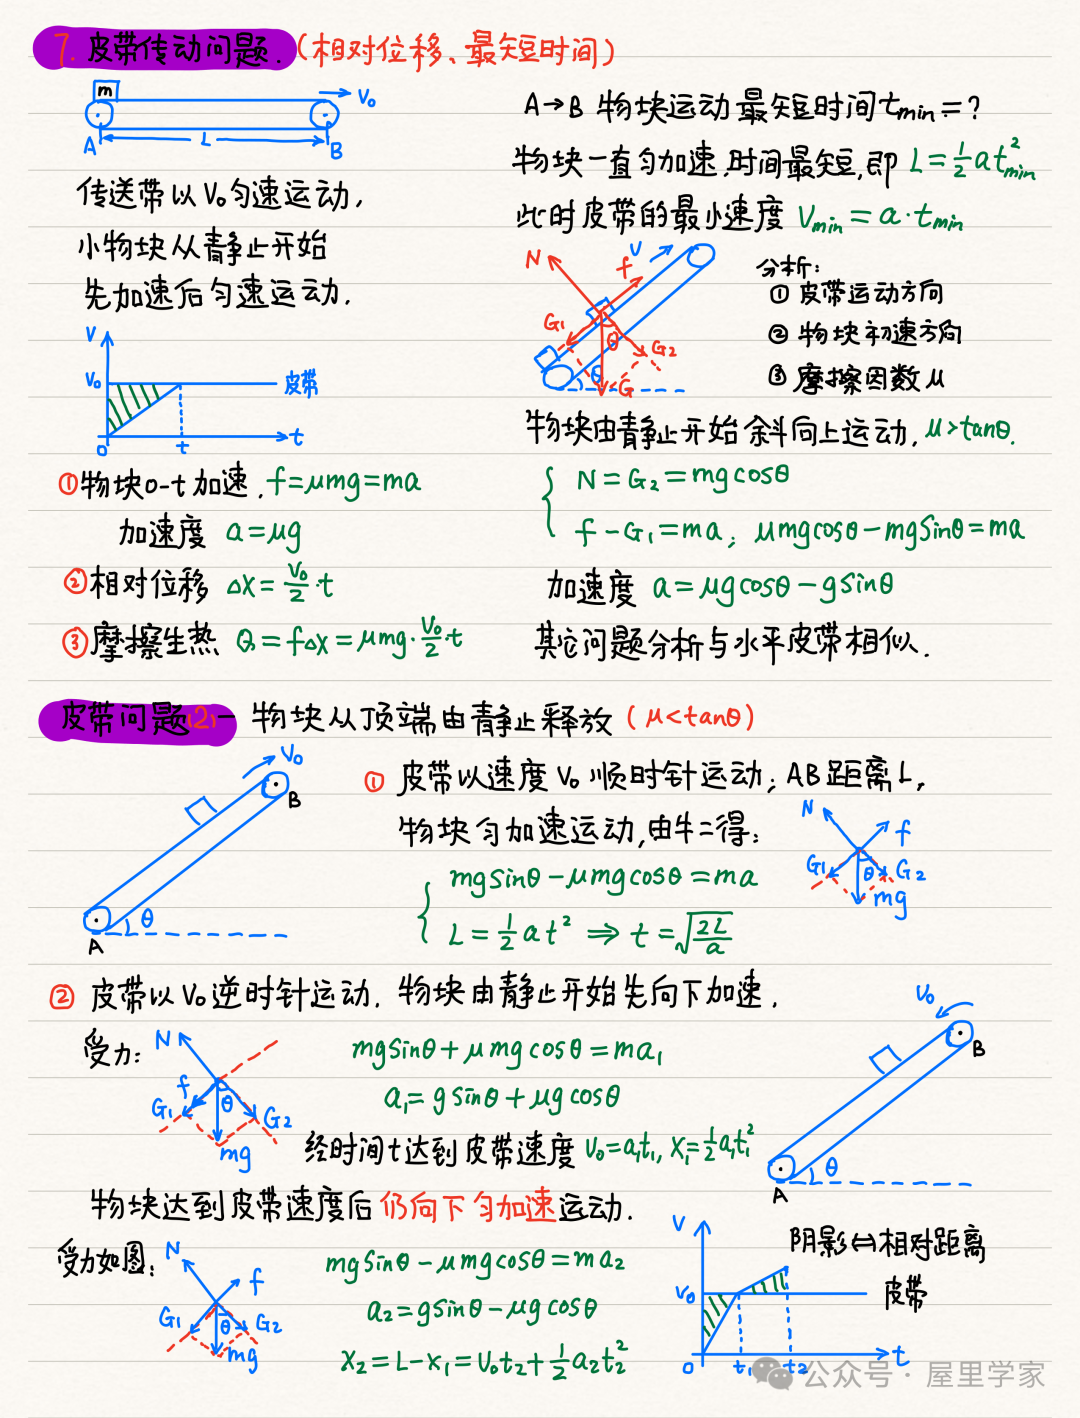 7. 皮带传动问题.(相对位移、最短时间)
m
V₀
A
L
B
传送带以V₀匀速运动,
小物块从静止开始
先加速后匀速运动.
V
V₀
皮带
0
t
t
①物块0-t加速.f=μmg=ma
加速度 a=μg
②相对位移 Δx=V₀/2·t
③摩擦生热 Q=fΔx=μmg·V₀/2·t
A→B 物块运动最短时间tmin=?
物块一直匀加速,时间最短,即 L=½at²min
此时皮带的最小速度 Vmin=a·tmin
N
f
V
G₁
θ
G₂
θ
G
分析:
① 皮带运动方向
② 物块初速方向
③ 摩擦因数μ
物块由静止开始斜向上运动,μ>tanθ.
N=G₂=mgcosθ
f-G₁=ma; μmgcosθ-mgsinθ=ma
加速度 a=μgcosθ-gsinθ
其它问题分析与水平皮带相似.
皮带问题(2)-物块从顶端由静止释放(μ<tanθ)
V₀
B
θ
A
① 皮带以速度V₀顺时针运动;AB距离L,
物块匀加速运动,由牛二得:
mgsinθ-μmgcosθ=ma
L=½at² ⇒ t=√(2L/a)
N
f
G₁
θ
G₂
mg
② 皮带以V₀逆时针运动.物块由静止开始先向下加速.
受力:
N
f
G₁
θ
G₂
mg
mgsinθ+μmgcosθ=ma₁
a₁=gsinθ+μgcosθ
经时间t达到皮带速度 V₀=a₁t₁, X₁=½a₁t₁²
V₀
B
θ
A
物块达到皮带速度后仍向下匀加速运动.
受力如图:
N
f
G₁
θ
G₂
mg
mgsinθ-μmgcosθ=ma₂
a₂=gsinθ-μgcosθ
X₂=L-X₁=V₀t₂+½a₂t₂²
V
V₀
0
t₁
t₂
t
阴影⇔相对距离
皮带
公众号·屋里学家